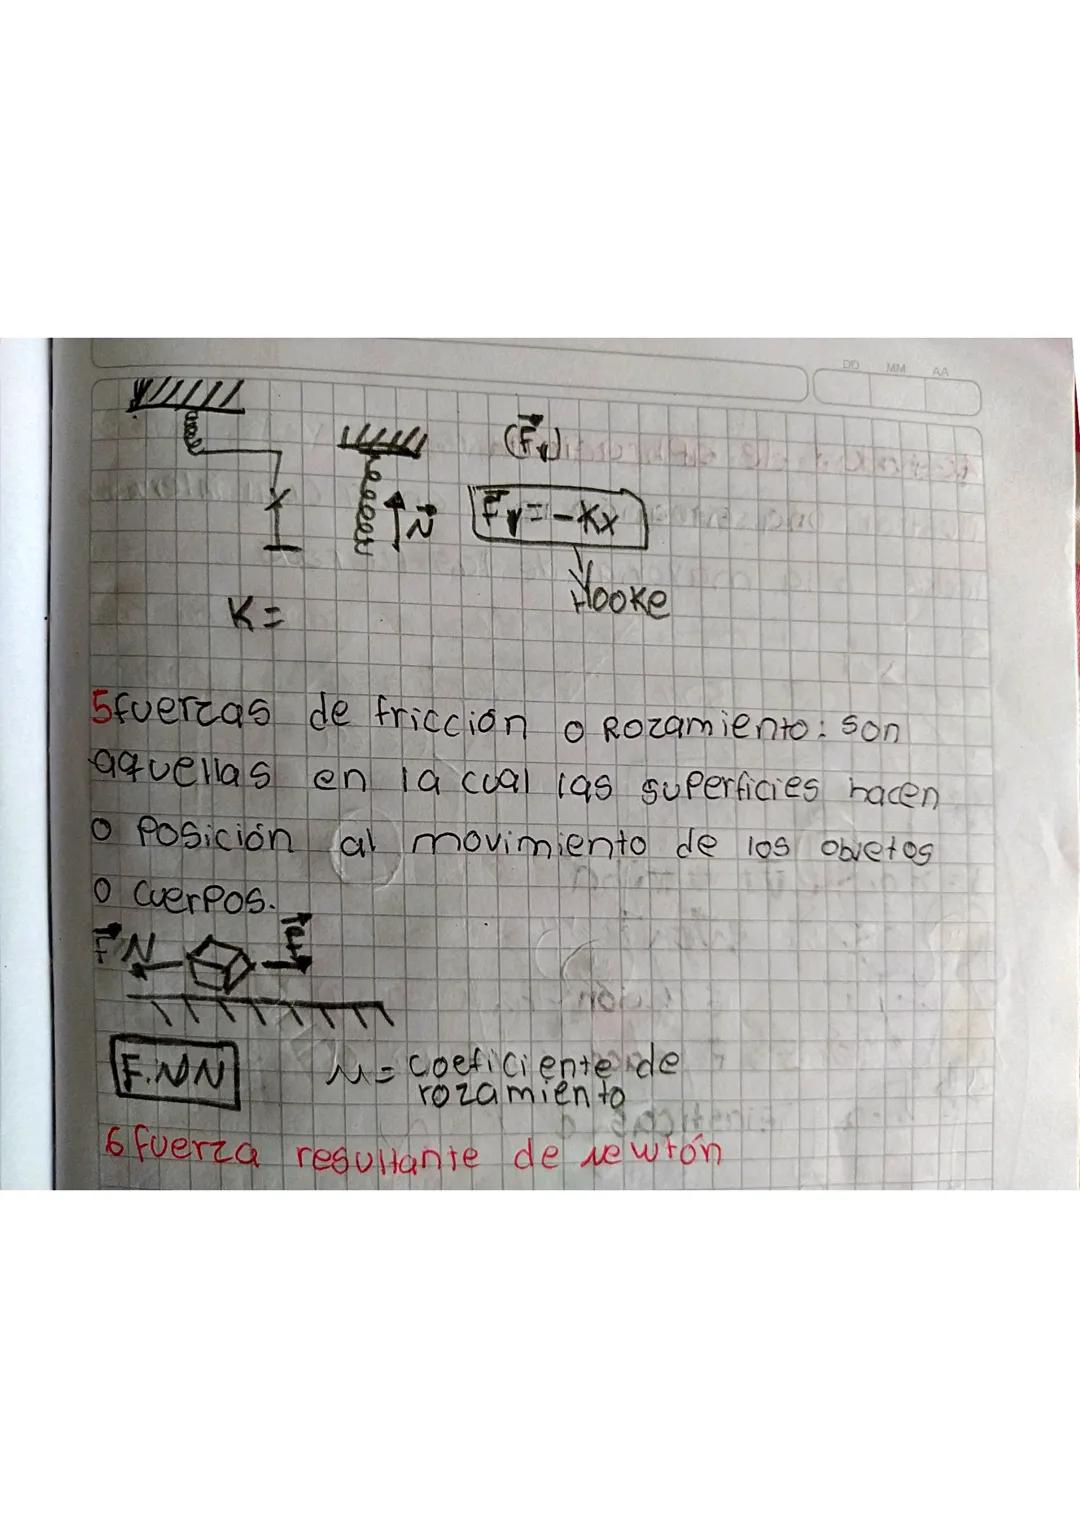 DD MM AA
(F⃗r)
x
N⃗
F⃗r=-Kx
Hooke
K=
5 fuerzas de fricción o Rozamiento: son
aquellas en la cual las superficies hacen
o Posición al movimiento de los objetos
o cuerpos.
F⃗N
F.NN
μ= coeficiente de
rozamiento
6 fuerza resultante de newtón